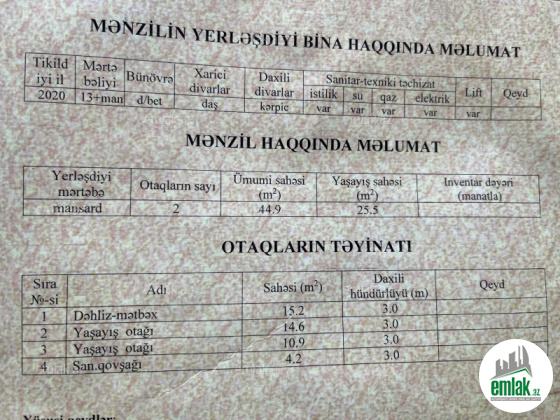 MƏNZİLİN YERLƏŞDİYİ BİNA HAQQINDA MƏLUMAT
Tikildiyi il Mərtəbəliyi Bünövrə Xarici divarlar Daxili divarlar Sanitar-texniki təchizat Lift Qeyd
istilik su qaz elektrik
2020 13+man d/bet daş kərpic var var var var var
MƏNZİL HAQQINDA MƏLUMAT
Yerləşdiyi mərtəbə Otaqların sayı Ümumi sahəsi (m²) Yaşayış sahəsi (m²) İnventar dəyəri (manatla)
mansard 2 44.9 25.5
OTAQLARIN TƏYİNATI
Sıra №-si Adı Sahəsi (m²) Daxili hündürlüyü (m) Qeyd
1 Dəhliz-mətbəx 15.2 3.0
2 Yaşayış otağı 14.6 3.0
3 Yaşayış otağı 10.9 3.0
4 San.qovşağı 4.2 3.0
emlak.az